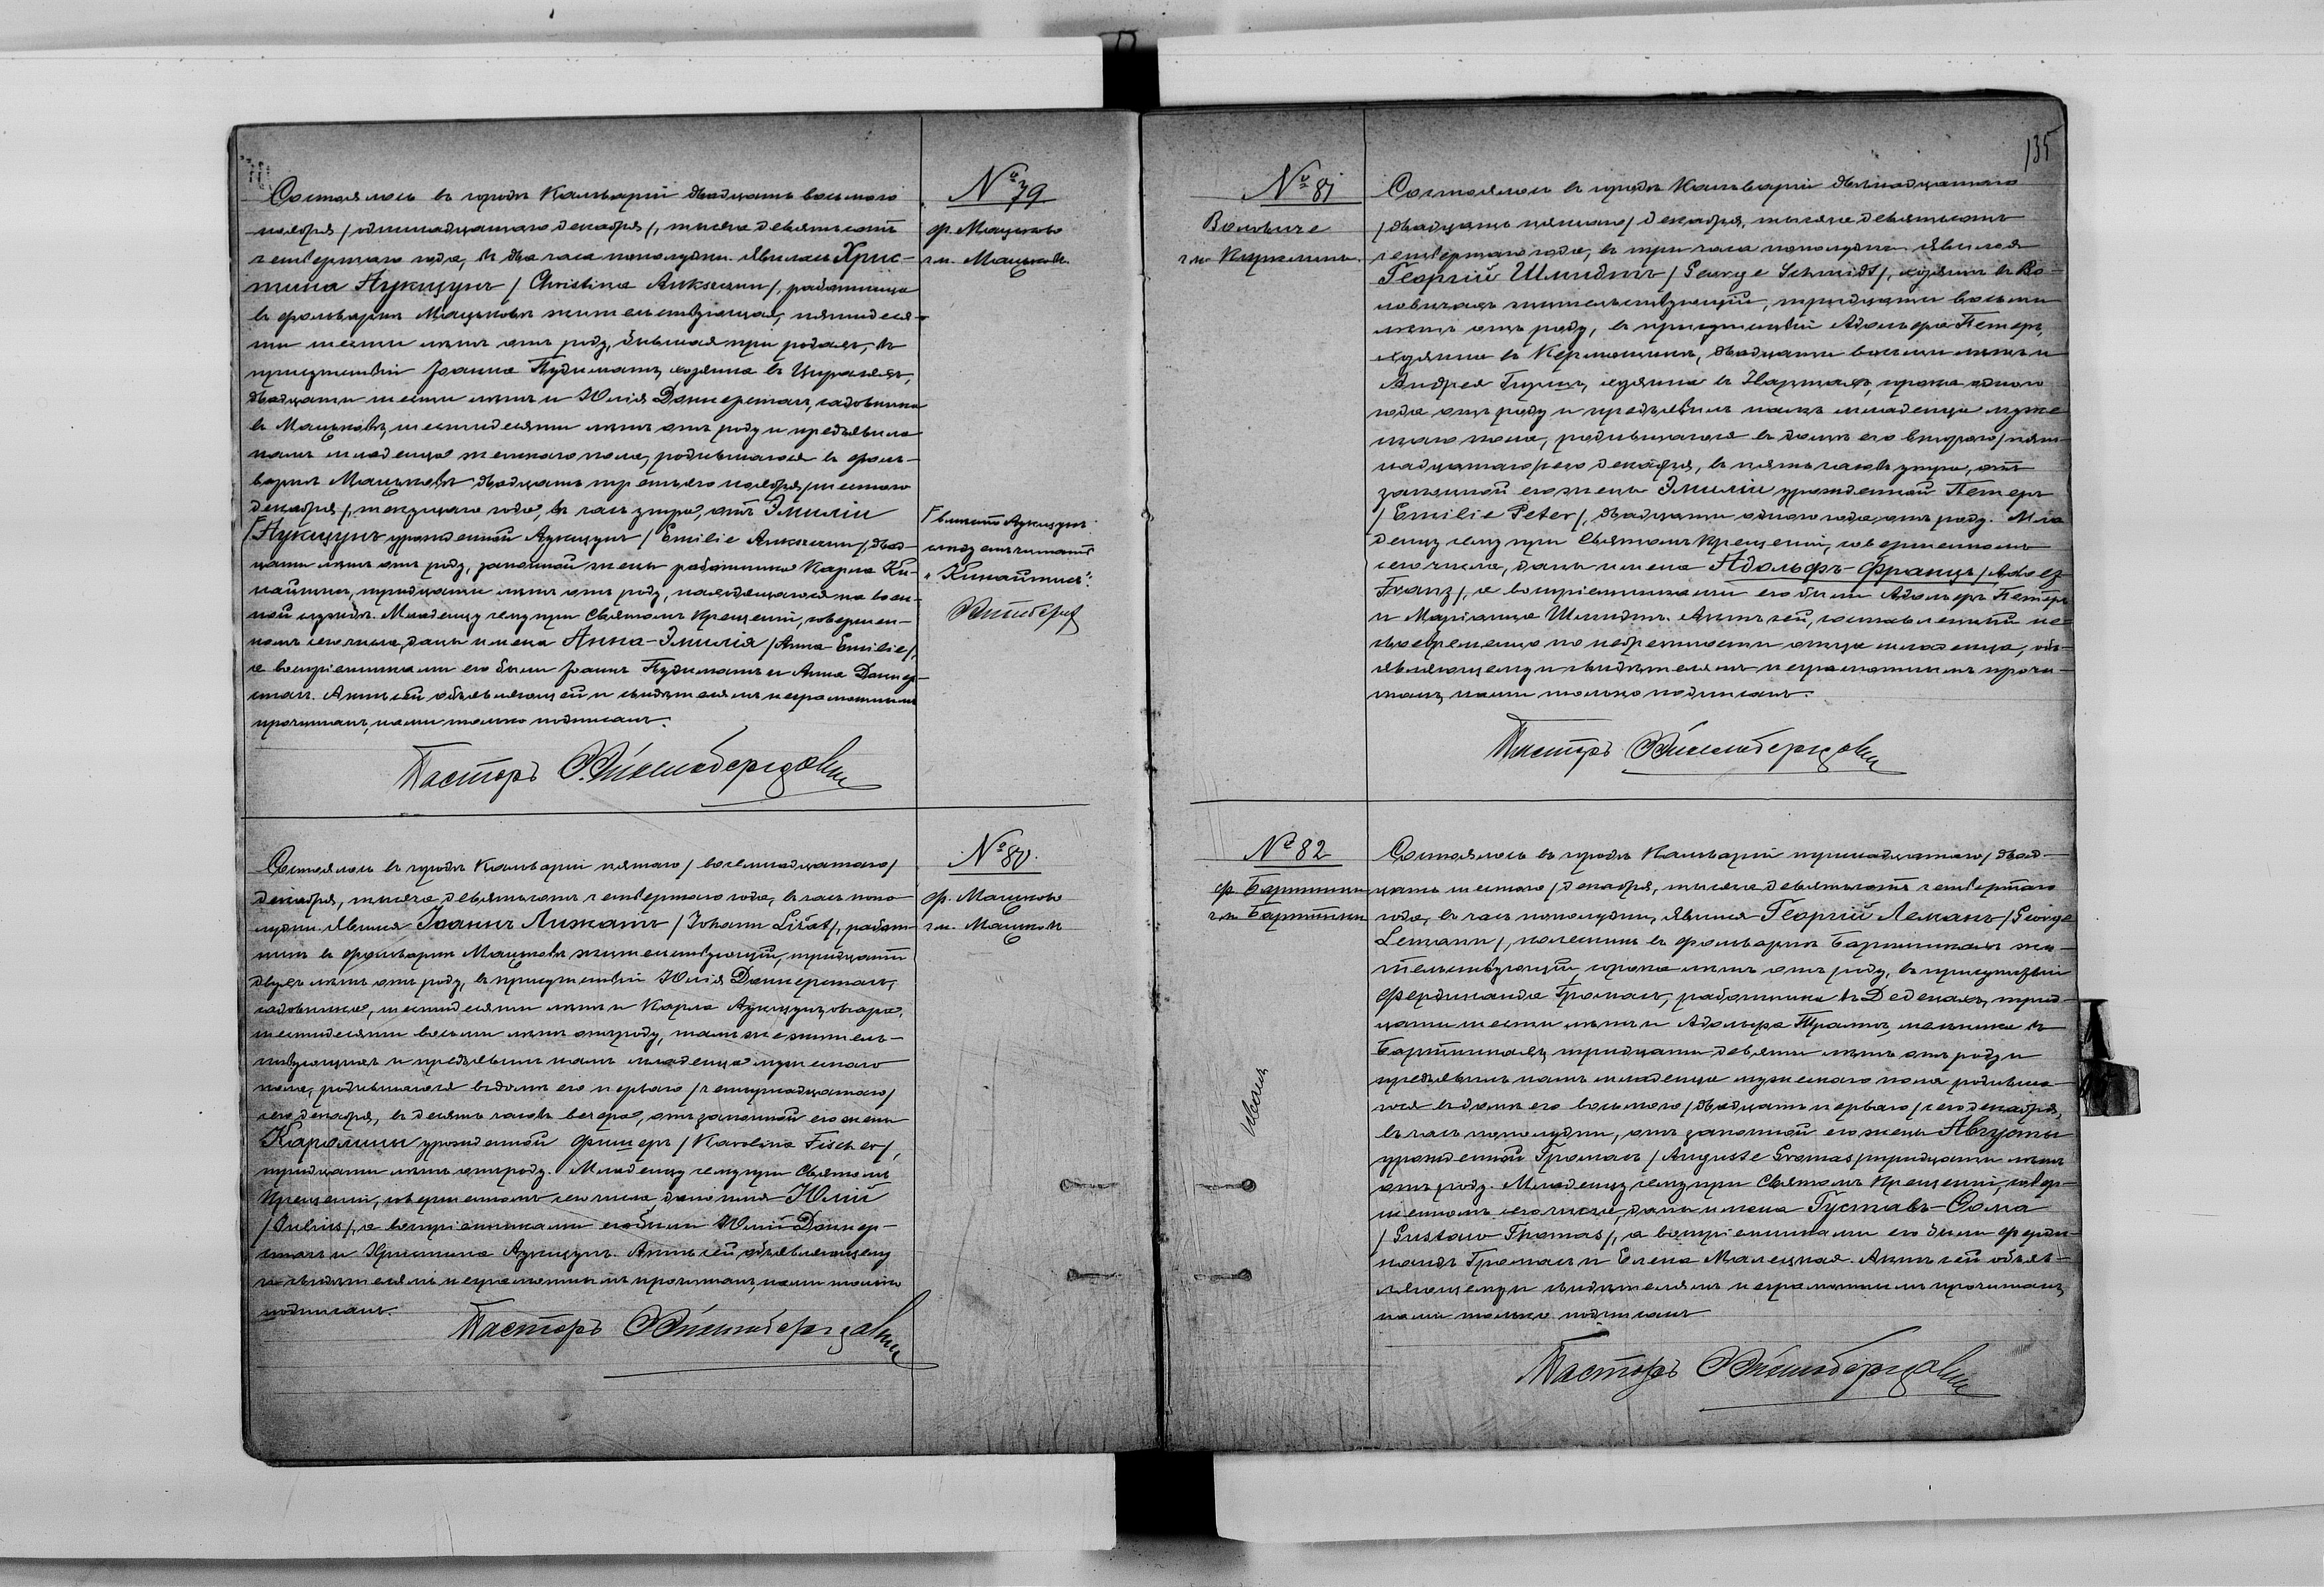 № 79
ф. Мацково
гм. Мацковъ
Состоялось въ городѣ Кальваріи двадцать восьмого
ноября /одиннадцатаго декабря/, тысяча девятьсотъ
четвертаго года, въ два часа пополудни. Явилась Хрис-
тина Аукщунъ / Christine Aukszun /, работница
въ фольваркѣ Мацковѣ жительствующая, пятидеся-
ти шести лѣтъ отъ роду, бывшая при родахъ, въ
присутствіи Іоанна Пудиматъ, хозяина въ
двадцати шести лѣтъ и Юлія Доннерстагъ, садовника
въ Мацковѣ, шестидесяти лѣтъ отъ роду и предъявила
намъ младенца женскаго пола, родившагося въ фоль-
варкѣ Мацковѣ двадцать третьяго ноября /шестого
декабря/, текущаго года, въ часъ утра, отъ Эмиліи
Аукщунъ урожденной Аукщунъ / Emilie Aukszun /, двад-
цати лѣтъ отъ роду, законной жены работника Карла Ки-
найтиса, тридцати лѣтъ отъ роду, находящагося на воен-
ной службѣ. Младенцу сему при Святомъ Крещеніи, совершен-
номъ сего числа, даны имена Анна-Эмилія / Anna-Emilie /,
а воспріемниками его были Іоаннъ Пудиматъ и Анна Доннер-
стагъ. Актъ сей объявляющей и свидѣтелямъ неграмотнымъ
прочитанъ, нами только подписанъ.
Пасторъ
вмѣсто Аукщунъ
слѣдуетъ читать
„Кинайтисъ“:
№ 80.
ф. Мацково
гм. Мацковъ
Состоялось въ городѣ Кальваріи пятаго / восемнадцатаго /
декабря, тысяча девятьсотъ четвертаго года, въ часъ попо-
лудни. Явился Іоаннъ Лижатъ / Johann Ližat /, работ-
никъ въ фольваркѣ Мацковѣ жительствующій, тридцати
двухъ лѣтъ отъ роду, въ присутствіи Юлія Доннерстагъ,
садовника, шестидесяти лѣтъ и Карла Аукщунъ, овчара,
шестидесяти восьми лѣтъ отъ роду, тамъ же житель-
ствующихъ и предъявилъ намъ младенца мужескаго
пола, родившагося въ домѣ его перваго / четырнадцатаго /
сего декабря, въ десять часовъ вечера, отъ законной его жены
Каролины урожденной Фишеръ / Karoline Fischer /,
тридцати лѣтъ отъ роду. Младенцу сему при Святомъ
Крещеніи, совершенномъ сего числа дано имя Юлій
/ Julius /, а воспріемниками его были Юлій Доннер-
стагъ и Христина Аукщунъ. Актъ сей объявляющему
и свидѣтелямъ неграмотнымъ прочитанъ, нами только
подписанъ.
Пасторъ
135
№ 81
Воловиче
гм.
Состоялось въ городѣ Кальваріи двѣнадцатаго
/двадцать пятаго/ декабря, тысяча девятьсотъ
четвертаго года, въ три часа пополудни. Явился
Георгій Шмидтъ / George Schmidt /, хозяинъ въ Во-
ловичахъ жительствующій, тридцати восьми
лѣтъ отъ роду, въ присутствіи Адольфа Петеръ,
хозяина въ двадцати восьми лѣтъ и
Андрея хозяина въ сорока одного
года отъ роду и предъявилъ намъ младенца муже
скаго пола, родившагося въ домѣ его второго /пят-
надцатаго/ сего декабря, въ пять часовъ утра, отъ
законной его жены Эмиліи урожденной Петеръ
/ Emilie Peter /, двадцати одного года отъ роду. Мла
денцу сему при Святомъ Крещеніи, совершенномъ
сего числа, даны имена Адольфъ-Францъ / Adolf
Franz /, а воспріемниками его были Адольфъ Петеръ
и Маріанна Шмидтъ. Актъ сей, составленный не-
своевременно по небрежности отца младенца, объ-
являющему и свидѣтелямъ неграмотнымъ прочи-
танъ, нами только подписанъ.
Пасторъ
№ 82
ф. Бартники
гм. Бартники
Состоялось въ городѣ Кальваріи тринадцатаго / двад-
цать шестого / декабря, тысяча девятьсотъ четвертаго
года, въ часъ пополудни, явился Георгій Леманъ / George
Lemann /, колесникъ въ фольваркѣ Бартникахъ жи-
тельствующій, сорока лѣтъ отъ роду, въ присутствіи
Фердинанда Громасъ, работника въ трид-
цати шести лѣтъ и Адольфа мельника въ
Бартникахъ, тридцати девяти лѣтъ отъ роду и
предъявилъ намъ младенца мужескаго пола родивша-
гося въ домѣ его восьмого / двадцать перваго / сего декабря,
въ часъ пополудни, отъ законной его жены Августы
урожденной Громасъ / Auguste Gromas / тридцати лѣтъ
отъ роду. Младенцу сему при Святомъ Крещеніи, совер-
шенномъ сего числа, даны имена Густавъ-Ѳома
/ Gustaw-Thomas /, а воспріемниками его были Ферди-
нандъ Громасъ и Елена Малецкая. Актъ сей объяв-
ляющему и свидѣтелямъ неграмотнымъ прочитанъ,
нами только подписанъ
Пасторъ